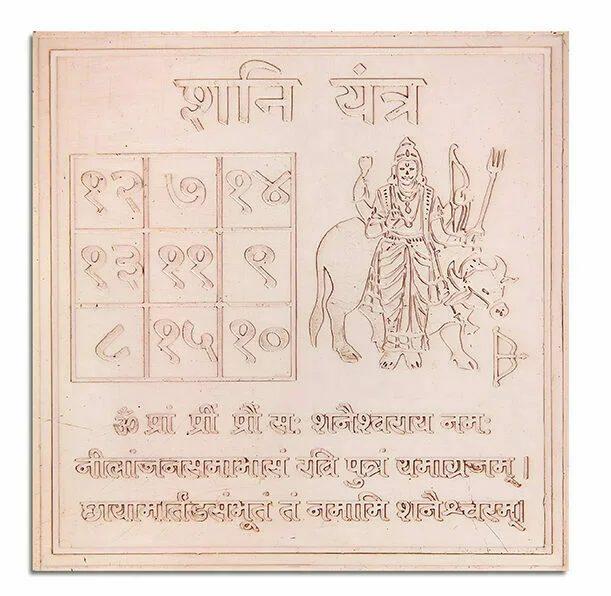 शानि यंत्र
१२ ७ १४
१३ ११ ९
८ १५ १०
ॐ प्रां प्रीं प्रौं सः शनैश्चराय नमः
नीलांजनसमाभासं रवि पुत्रं यमाग्रजम् ।
छायामार्तंडसंभूतं तं नमामि शनैश्चरम्।